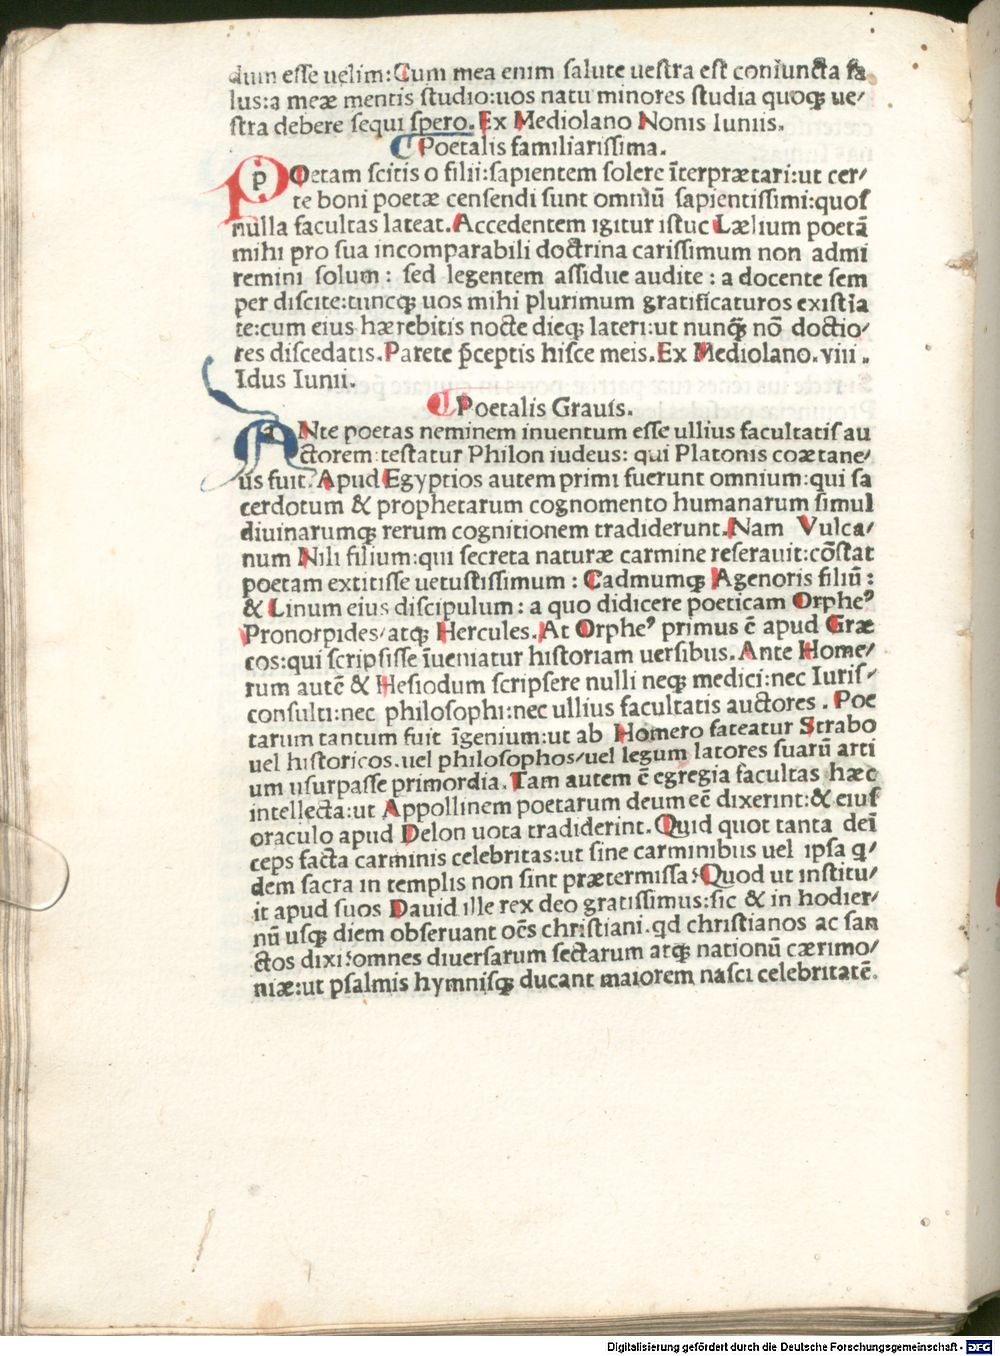 dum esse uelim: Cum mea enim salute uestra est coniuncta sa
lus: a meæ mentis studio: uos natu minores studia quoqꝫ ue/
stra debere sequi spero. Ex Mediolano Nonis Iuniis.
Poetalis familiarissima.
POetam scitis o filii: sapientem solere īterprætari: ut cer/
te boni poetæ censendi sunt omniū sapientissimi: quos
nulla facultas lateat. Accedentem igitur istuc Lælium poetā
mihi pro sua incomparabili doctrina carissimum non admi
remini solum: sed legentem assidue audite: a docente sem
per discite: tuncqꝫ uos mihi plurimum gratificaturos existia
te: cum eius hærebitis nocte dieqꝫ lateri: ut nunq̄ȝ nō doctio/
res discedatis. Parete p̄ceptis hisce meis. Ex Mediolano. viii.
Idus Iunii.
Poetalis Grauis.
ANte poetas neminem inuentum esse ullius facultatis au
ctorem testatur Philon iudeus: qui Platonis coætane/
us fuit. Apud Egyptios autem primi fuerunt omnium: qui sa
cerdotum & prophetarum cognomento humanarum simul
diuinarumqꝫ rerum cognitionem tradiderunt. Nam Vulca/
num Nili filium: qui secreta naturæ carmine reserauit: cōstat
poetam extitisse uetustissimum: Cadmumqꝫ Agenoris filiū:
& Linum eius discipulum: a quo didicere poeticam Orpheꝰ
Pronorpides/ atqꝫ Hercules. At Orpheꝰ primus ē apud Græ
cos: qui scripsisse īueniatur historiam uersibus. Ante Home/
rum autē & Hesiodum scripsere nulli neqꝫ medici: nec Iuris/
consulti: nec philosophi: nec ullius facultatis auctores. Poe
tarum tantum fuit īgenium: ut ab Homero fateatur Strabo
uel historicos. uel philosophos/ uel legum latores suarū arti
um usurpasse primordia. Tam autem ē egregia facultas hæc
intellecta: ut Appollinem poetarum deum eē dixerint: & eius
oraculo apud Delon uota tradiderint. Quid quot tanta deī
ceps facta carminis celebritas: ut sine carminibus uel ipsa q/
dem sacra in templis non sint prætermissa? Quod ut institu/
it apud suos Dauid ille rex deo gratissimus: sic & in hodier/
nū usqꝫ diem obseruant oēs christiani. qd christianos ac san
ctos dixi? omnes diuersarum sectarum atqꝫ nationū cærimo/
niæ: ut psalmis hymnisqꝫ ducant maiorem nasci celebritatē.
Digitalisierung gefördert durch die Deutsche Forschungsgemeinschaft - DFG